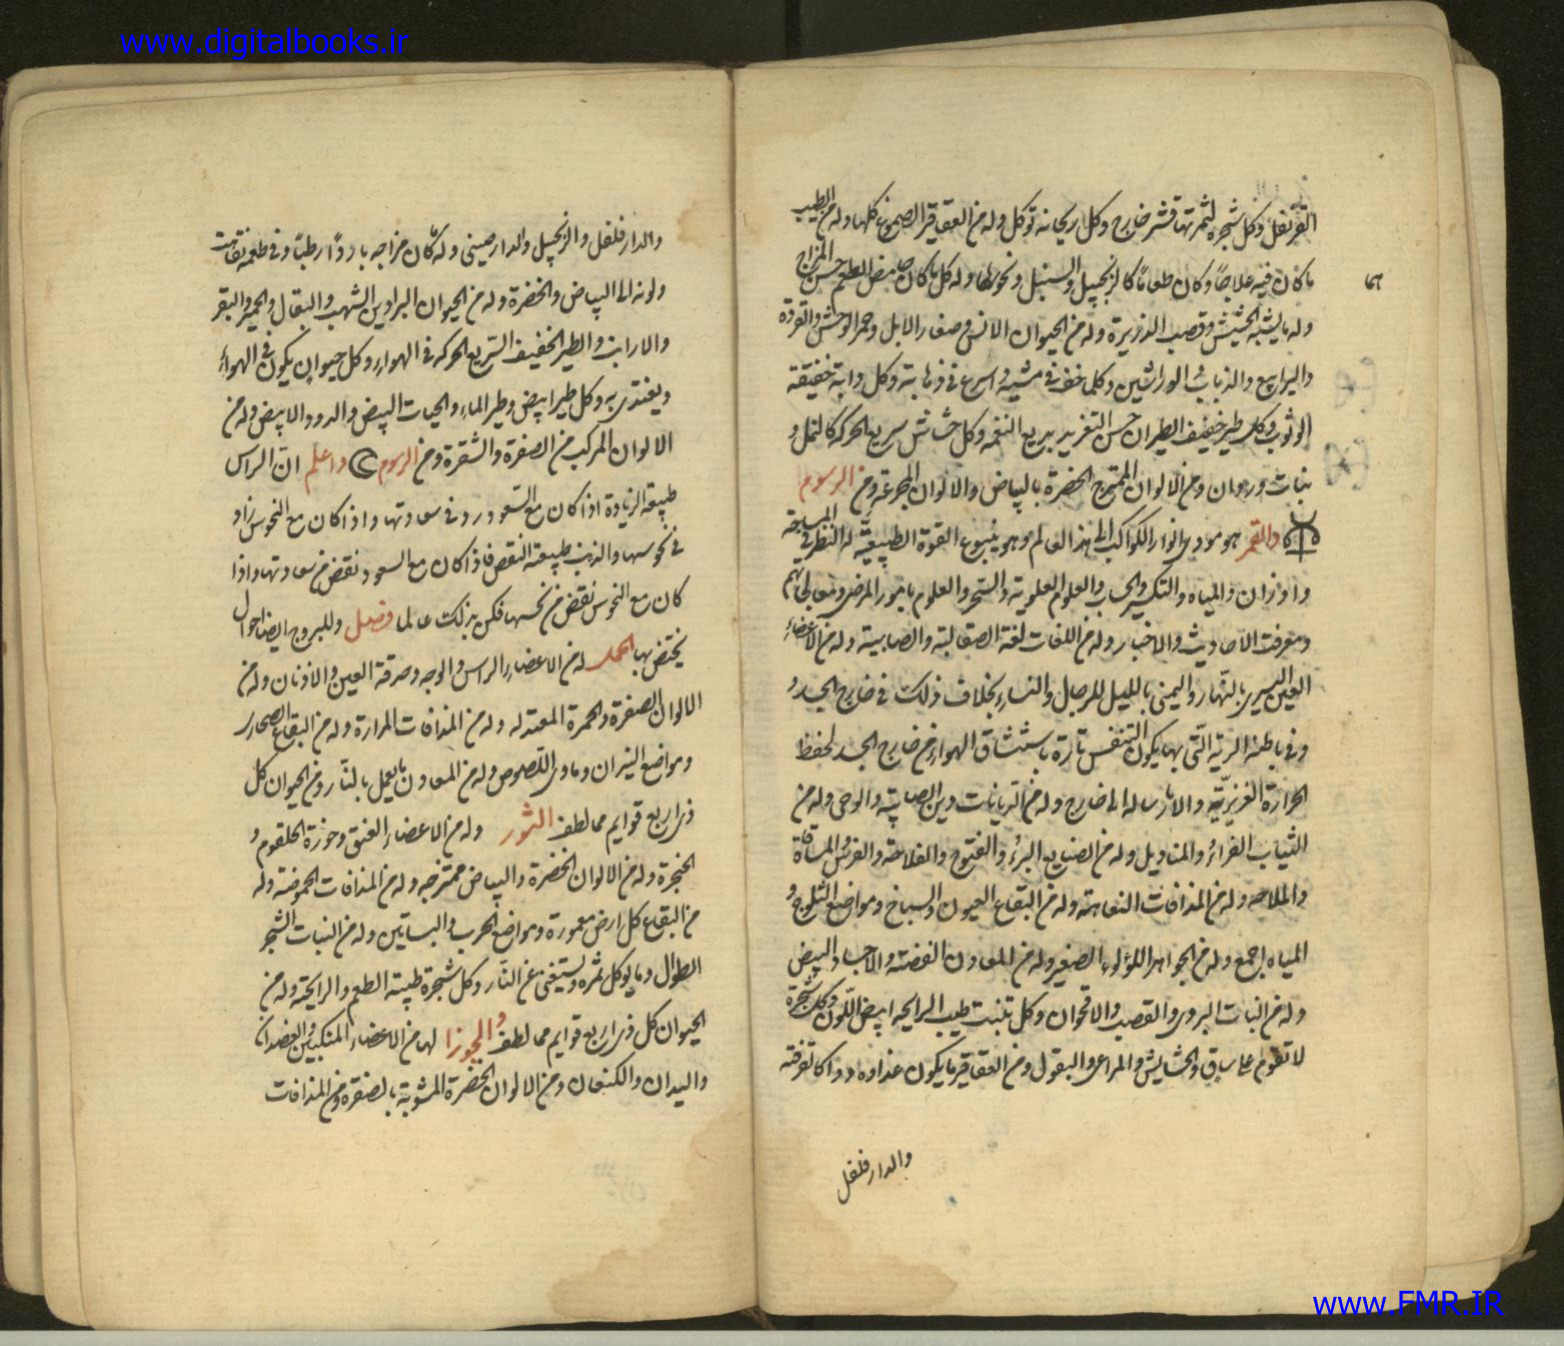 www.digitalbooks.ir
القرنفل وكل شجرة لثمرتها قشر خارج وكل ريحانه تؤكل وله من العقاقير الصموغ كلها وله من الطيب
ما كان فيه علاجا وكان طعاما كالزنجبيل والسنبل ونحوها وله كل ما كان حامض الطعم حسن المزاج
وله ما يشبه الحشيش وقصب الذريرة وله من الحيوان الانس وصغار الابل وحمر الوحش والقردة
واليرابيع والذباب والوراشين وكلما خف في مشيه واسرع في ذهابه وكل دابة خفيفة
الوثوب وكل طير خفيف الطيران حسن التغريد بديع النغمه وكل خشاش سريع الحركه كالنمل و
بنات وردان ومن الالوان الممتزج الخضرة بالبياض والالوان المجزعه ومن الرسوم
والقمر هو مودى انوار الكواكب الى هذا العالم وهو ينبوع القوة الطبيعيه له النظر في المساحه
واوزان والمياه والتكسير والحساب والعلوم العلوية والسحر والعلوم بامور المرضى ومعالجاتهم
ومعرفة الاحاديث والاخبار وله من اللغات لغة الصقالبة والصابية وله من الاعضاء
العين اليسرى بالنهار واليمنى بالليل للرجال والنساء بخلاف ذلك في خارج الجسد و
وفي باطنه الرية التي بها يكون التنفس تارة باستنشاق الهواء من خارج الجسد لحفظ
الحرارة الغريزية والا بارساله الى خارج وله من الديانات دين الصابية والوحى وله من
الثياب الفراء والمناديل وله من الصنايع البرء والفتوح والفلاحة والغرس المساقاة
والملاحه وله من المذاقات التفاهته وله من البقاع العيون والسباخ ومواضع الثلوج و
المياه اجمع وله من الجواهر اللؤلؤ الصغير وله من المعادن الفضة والاجساد البيض
وله من النبات البردى والقصب والاقحوان وكل نبت طيب الرايحه ابيض اللون وكل شجرة
لا تقوم على ساق والحشايش والمراعى والبقول ومن العقاقير ما يكون غذا ودواء كالقرفة
والدارفلفل
والدارفلفل والزنجبيل والدارصينى وله كان مزاجه باردا رطبا وفي طعمه تفاهت
ولونه الى البياض والخضرة وله من الحيوان البراذين الشهب والبغال والحمير والبقر
والارانب والطير الخفيف السريع الحركه في الهواء وكل حيوان يكون في الهواء
ويغتذى به وكل طير ابيض وطير الماء والحيات البيض والدود الابيض وله من
الالوان المركب من الصفرة والشقرة ومن الرسوم واعلم ان الراس
طبيعة الزيادة اذا كان مع السعود زد في سعادتها واذا كان مع النحوس زاد
في نحوسها والذنب طبيعة النقص فاذا كان مع السعود نقص من سعادتها واذا
كان مع النحوس نقص من نحسها فكن بذلك عالما فصل وللبروج ايضا احوال
يختص بها الحمل له من الاعضاء الراس والوجه وحدقة العين والاذنان وله من
الالوان الصفرة والحمرة المعتدله وله من المذاقات المرارة وله من البقاع الصحارى
ومواضع النيران وماوى اللصوص وله من المعادن ما يعمل بالنار ومن الحيوان كل
ذى اربع قوايم مما لطف الثور وله من الاعضاء العنق وخرزة الحلقوم و
الحنجرة وله من الالوان الخضرة والبياض ممتزجه وله من المذاقات الحموضة وله
من البقاع كل ارض معمورة ومواضع الحرب والبساتين وله من النبات الشجر
الطوال وما يوكل ثمره ويستغنى عن النار وكل شجرة طيبة الطعم والرايحة وله من
الحيوان كل ذى اربع قوايم مما لطف والجوزا لها من الاعضاء المنكبين والعضدان
واليدان والكتفان ومن الالوان الخضرة المشوبة بالصفرة ومن المذاقات
www.FMR.IR